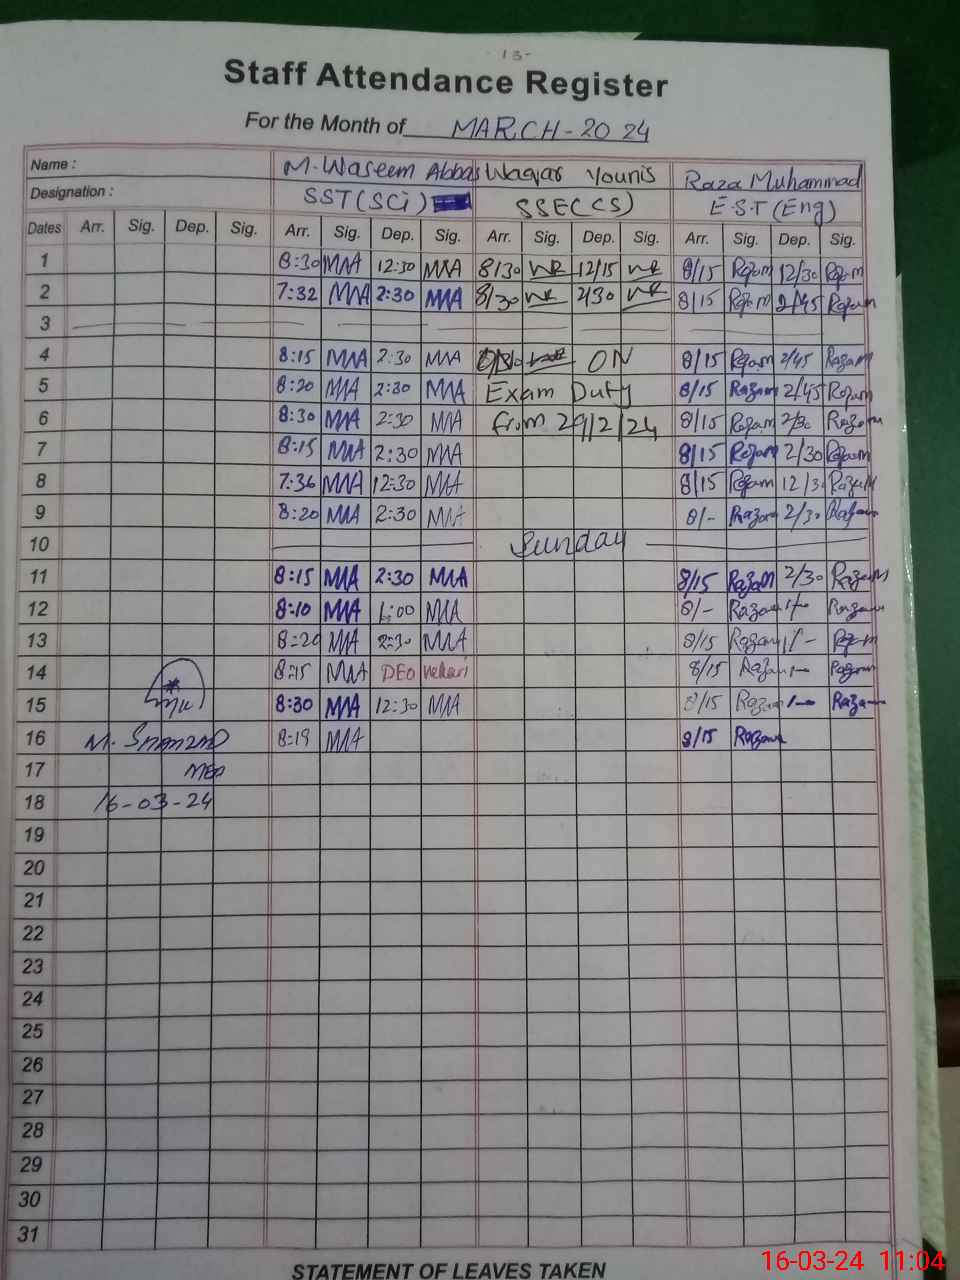 -13-
Staff Attendance Register
For the Month of MARCH-2024
Name : M. Waseem Abbas Waqar Younis Raza Muhammad
Designation : SST(SCi) SSE(CS) E.S.T(Eng)
Dates Arr. Sig. Dep. Sig. Arr. Sig. Dep. Sig. Arr. Sig. Dep. Sig. Arr. Sig. Dep. Sig.
1 8:30 MWA 12:30 MWA 8/30 WR 12/15 WR 8/15 Razam 12/30 Razam
2 7:32 MWA 2:30 MWA 8/30 WR 2/30 WR 8/15 Razam 2/45 Razam
3
4 8:15 MWA 2:30 MWA ON 8/15 Razam 2/45 Razam
5 8:20 MWA 2:30 MWA Exam Duty 8/15 Razam 2/45 Razam
6 8:30 MWA 2:30 MWA from 29/2/24 8/15 Razam 2/30 Razam
7 8:15 MWA 2:30 MWA 8/15 Razam 2/30 Razam
8 7:36 MWA 12:30 MWA 8/15 Razam 12/30 Razam
9 8:20 MWA 2:30 MWA 8/- Razam 2/30 Razam
10 Sunday
11 8:15 MWA 2:30 MWA 8/15 Razam 2/30 Razam
12 8:10 MWA 1:00 MWA 8/- Razam 1/- Razam
13 8:20 MWA 2:30 MWA 8/15 Razam 1/- Razam
14 8:15 MWA DEO Vehari 8/15 Razam 1- Razam
15 8:30 MWA 12:30 MWA 8/15 Razam 1- Razam
16 M. 8:19 MWA 8/15 Razam
17 MEA
18 16-03-24
19
20
21
22
23
24
25
26
27
28
29
30
31
STATEMENT OF LEAVES TAKEN
16-03-24 11:04